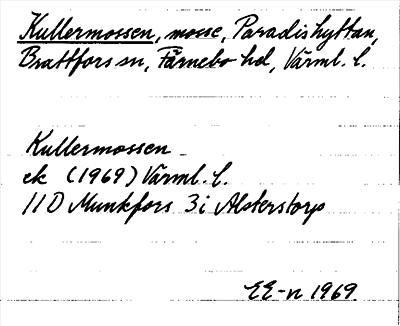 Kullermossen, mosse, Paradishyttan,
Brattfors sn, Färnebo hd, Värml. l.
Kullermossen
ek (1969) Värml. l.
11D Munkfors 3i Alsterstorp
EE-n 1969